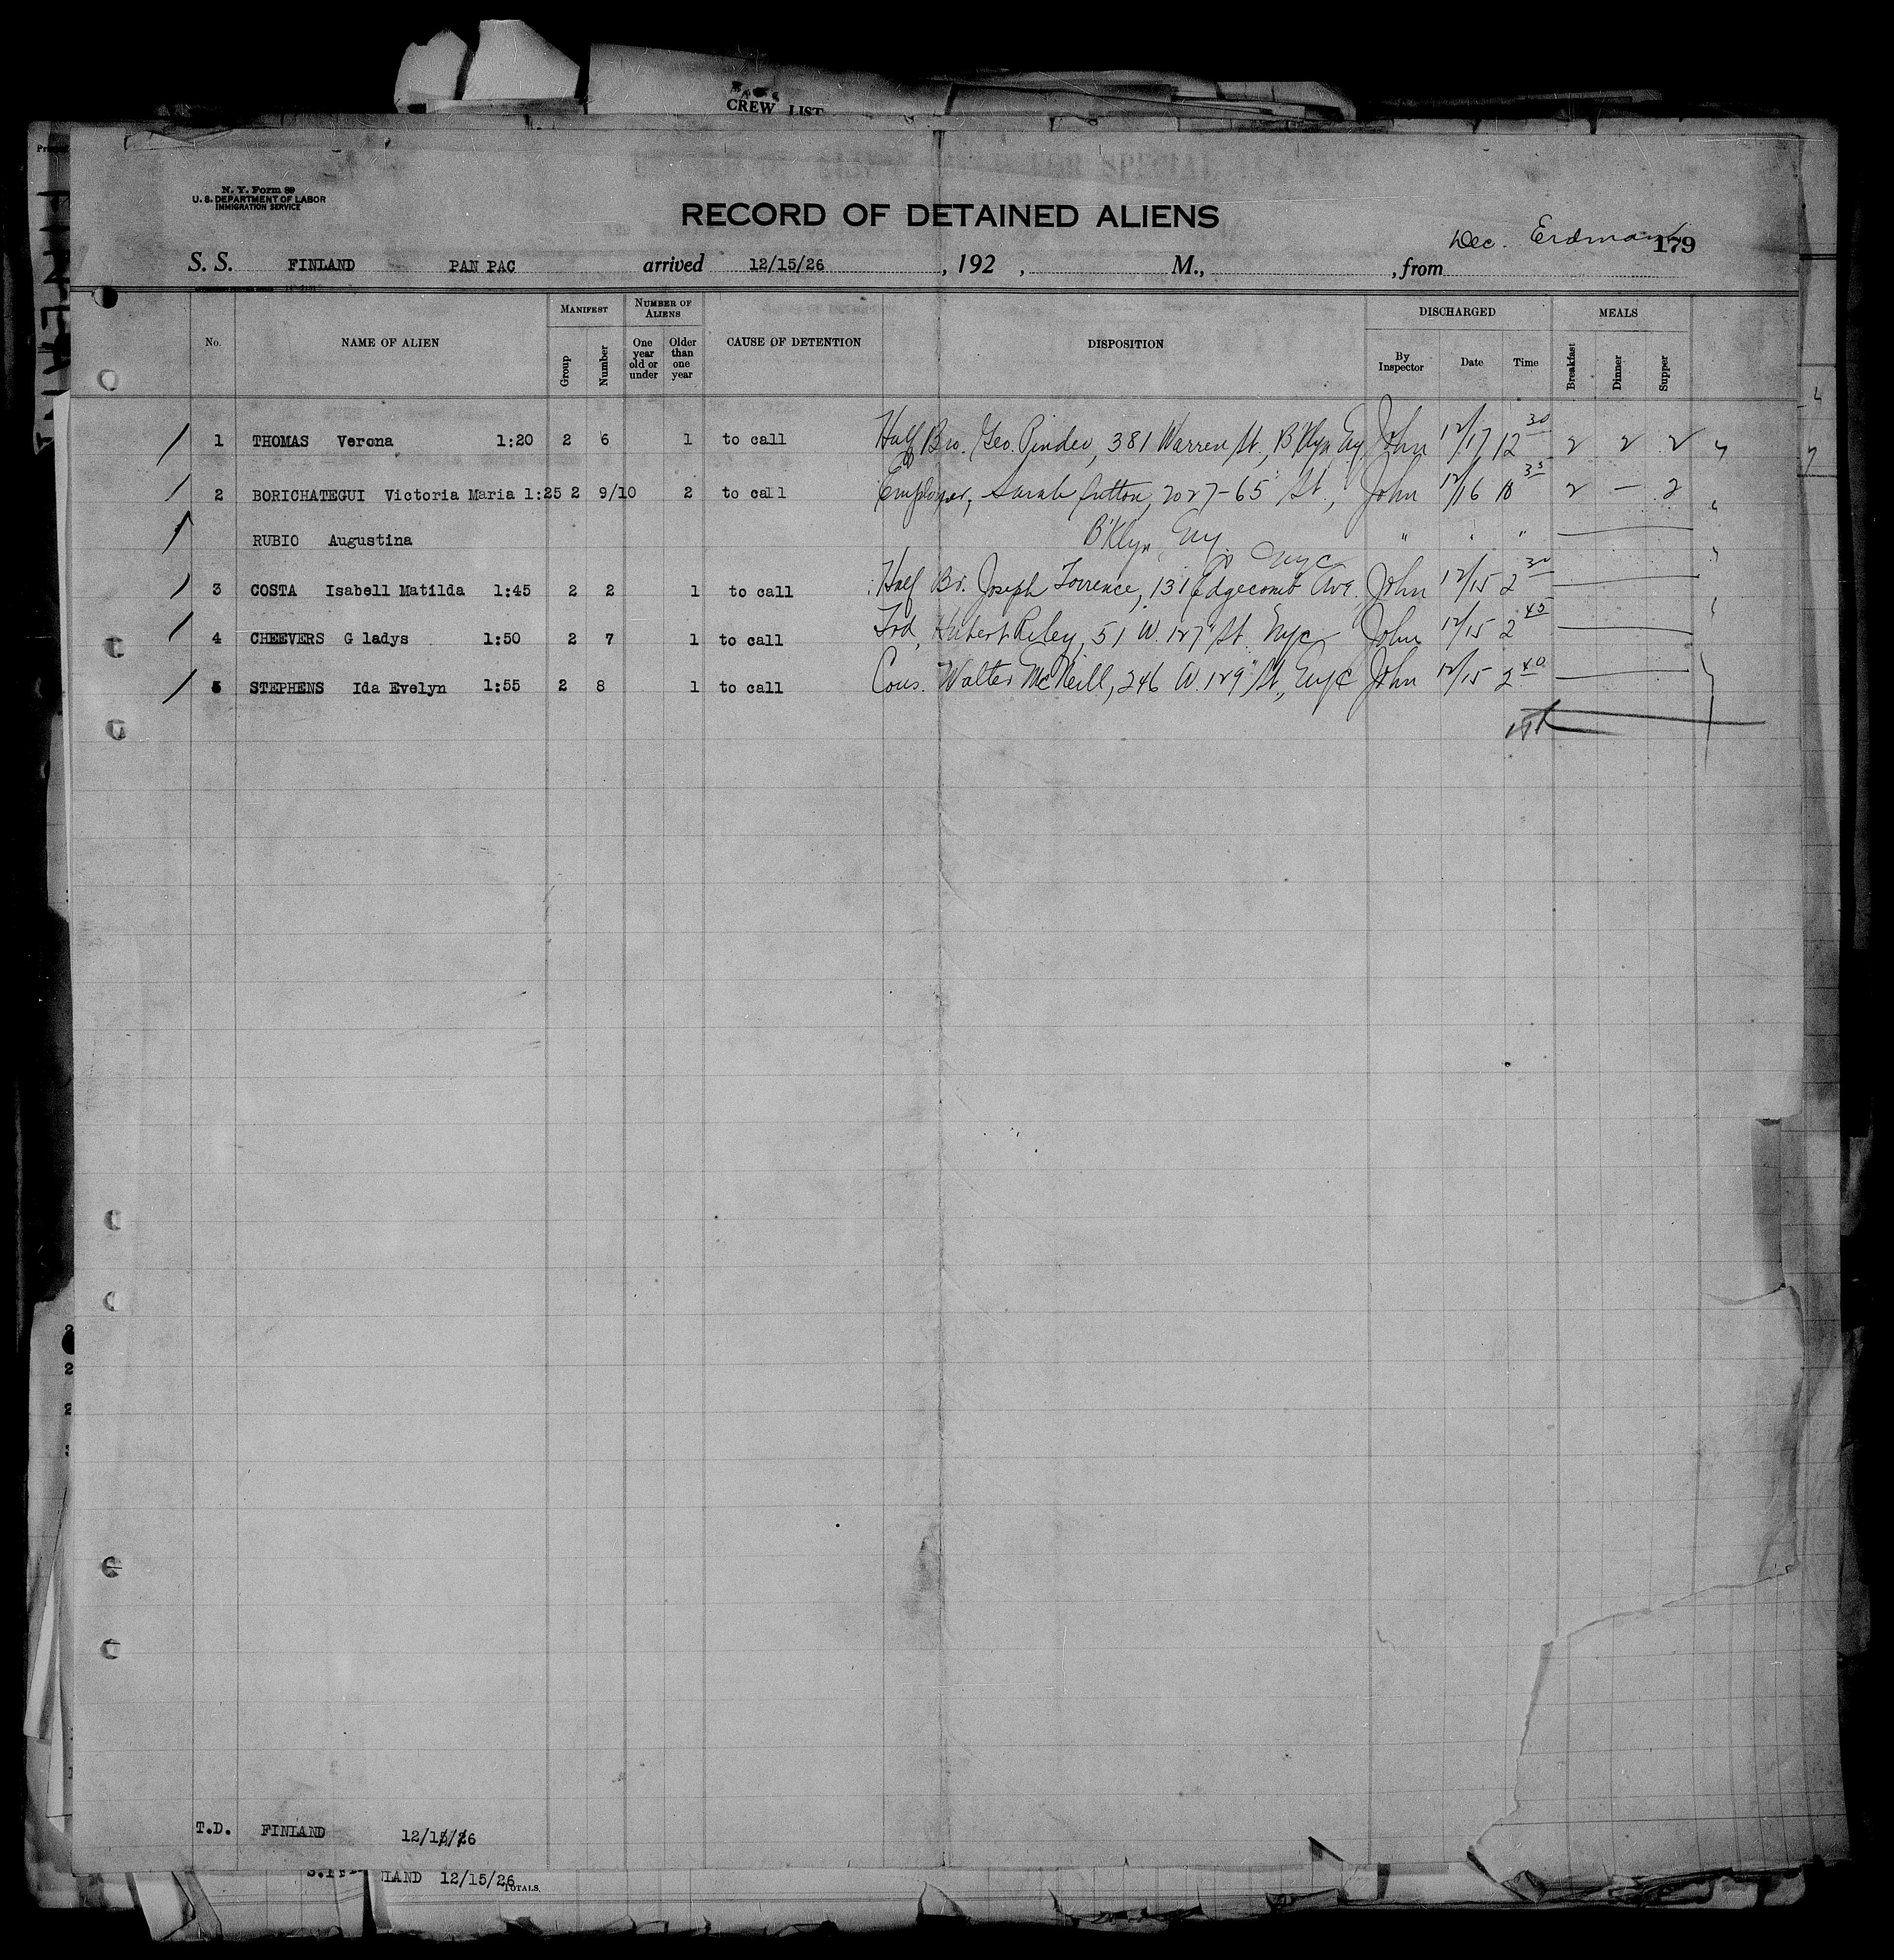 CREW LIST
N. Y. Form 89
U. S. DEPARTMENT OF LABOR
IMMIGRATION SERVICE
RECORD OF DETAINED ALIENS
Dec. Erdman
179
S. S. FINLAND PAN PAC arrived 12/15/26, 192 , M., , from
No. NAME OF ALIEN MANIFEST Group Number NUMBER OF ALIENS One year old or under Older than one year CAUSE OF DETENTION DISPOSITION DISCHARGED By Inspector Date Time MEALS Breakfast Dinner Supper
1 THOMAS Verona 1:20 2 6 1 to call Half Bro. Geo. Pinder, 381 Warren St., B'klyn Ny John 12/17 12 30 2 2 2
2 BORICHATEGUI Victoria Maria 1:25 2 9/10 2 to call Employer, Sarah Sutton, 2027-65" St., John 12/16 10 35 2 — 2
RUBIO Augustina B'klyn, Ny " " "
NYC
3 COSTA Isabell Matilda 1:45 2 2 1 to call Half Br. Joseph Torrence, 131 Edgecomb Ave. John 12/15 2 30
4 CHEEVERS G ladys 1:50 2 7 1 to call Frd, Hubert Riley, 51 W. 127" St. Nyc John 12/15 2 45
5 STEPHENS Ida Evelyn 1:55 2 8 1 to call Cous. Walter McNeill, 246 W. 129" St., Nyc John 12/15 2 40
T.D. FINLAND 12/15/26
LAND 12/15/26
TOTALS.